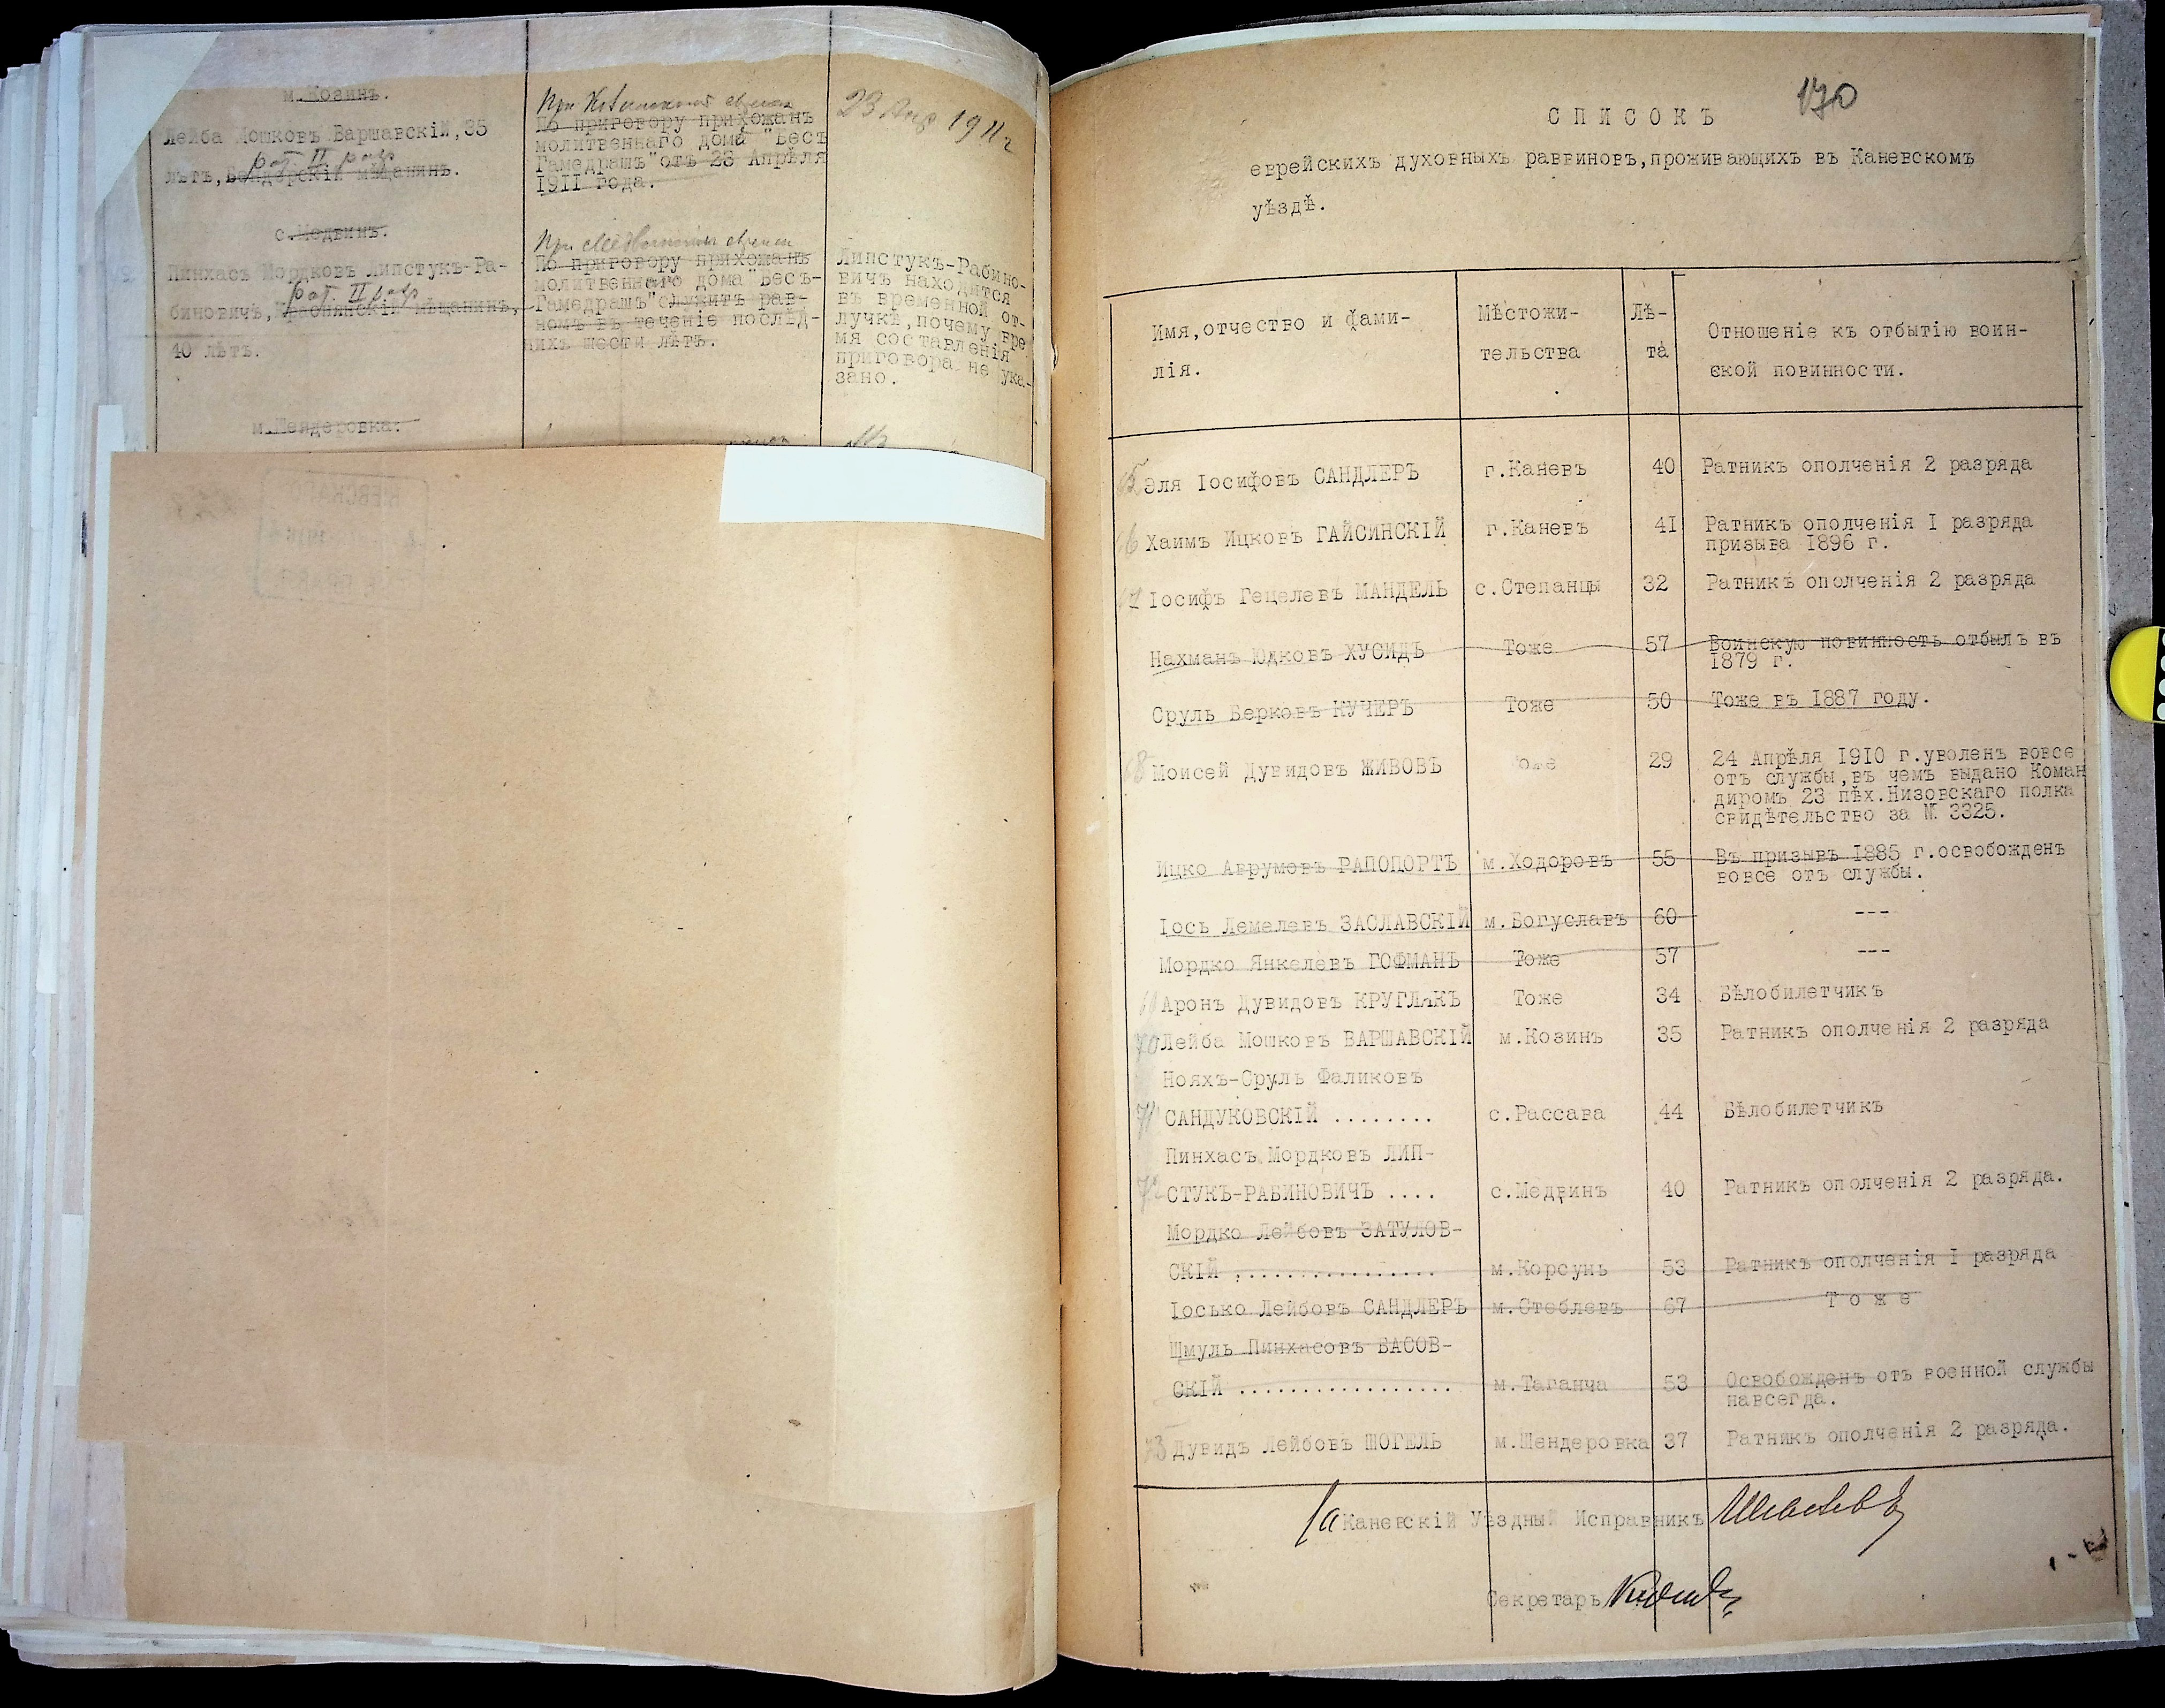 м.Козинъ.
Лейба Мошковъ Варшавскій, 35
рат. II разр
лѣтъ, Бендерскій мѣщанинъ.
с.Медвинъ.
Пинхасъ Мордковъ Липстукъ-Ра-
рат. II разр
биновичъ, мѣщанинъ,
40 лѣтъ.
м.Шендеровка.
При
По приговору прихожанъ
молитвеннаго дома "Бесъ
Гамедрашъ" отъ 23 Апрѣля
1911 года.
При
По приговору прихожанъ
молитвеннаго дома "Бесъ-
Гамедрашъ" служитъ рав-
номъ въ теченіе послѣд-
нихъ шести лѣтъ.
23 Апр 1911 г
Липстукъ-Рабино-
вичъ находится
въ временной от-
лучкѣ, почему вре
мя составленія
приговора не ука-
зано.
170
СПИСОКЪ
еврейскихъ духовныхъ раввиновъ, проживающихъ въ Каневскомъ
уѣздѣ.
Имя, отчество и фами-
лія.
Мѣстожи-
тельства
Лѣ-
та
Отношеніе къ отбытію воин-
ской повинности.
65 Эля Іосифовъ САНДЛЕРЪ г.Каневъ 40 Ратникъ ополченія 2 разряда
66 Хаимъ Ицковъ ГАЙСИНСКІЙ г.Каневъ 41 Ратникъ ополченія I разряда
призыва 1896 г.
67 Іосифъ Гецелевъ МАНДЕЛЬ с.Степанцы 32 Ратникъ ополченія 2 разряда
Нахманъ Юдковъ ХУСИДЪ Тоже 57 Воинскую повинность отбылъ въ
1879 г.
Сруль Берковъ КУЧЕРЪ Тоже 50 Тоже въ 1887 году.
68 Моисей Дувидовъ ЖИВОВЪ Тоже 29 24 Апрѣля 1910 г. уволенъ вовсе
отъ службы, въ чемъ выдано Коман
диромъ 23 пѣх. Низовскаго полка
свидѣтельство за № 3325.
Ицко Аврумовъ РАПОПОРТЪ м.Ходоровъ 55 Въ призывъ 1885 г. освобожденъ
вовсе отъ службы.
Іось Лемелевъ ЗАСЛАВСКІЙ м.Богуславъ 60 ---
Мордко Янкелевъ ГОФМАНЪ Тоже 57 ---
69 Аронъ Дувидовъ КРУГЛЯКЪ Тоже 34 Бѣлобилетчикъ
70 Лейба Мошковъ ВАРШАВСКІЙ м.Козинъ 35 Ратникъ ополченія 2 разряда
Нояхъ-Сруль Фаликовъ
71 САНДУКОВСКІЙ ........ с.Рассава 44 Бѣлобилетчикъ
Пинхасъ Мордковъ ЛИП-
72 СТУКЪ-РАБИНОВИЧЪ .... с.Медвинъ 40 Ратникъ ополченія 2 разряда.
Мордко Лейбовъ ЗАТУЛОВ-
СКІЙ ................ м.Корсунь 53 Ратникъ ополченія I разряда
Іосько Лейбовъ САНДЛЕРЪ м.Стеблевъ 67 Тоже
Шмуль Пинхасовъ БАСОВ-
СКІЙ ................. м.Таганча 53 Освобожденъ отъ военной службы
навсегда.
73 Дувидъ Лейбовъ ШОГЕЛЬ м.Шендеровка 37 Ратникъ ополченія 2 разряда.
За Каневскій Уѣздный Исправникъ
Секретарь